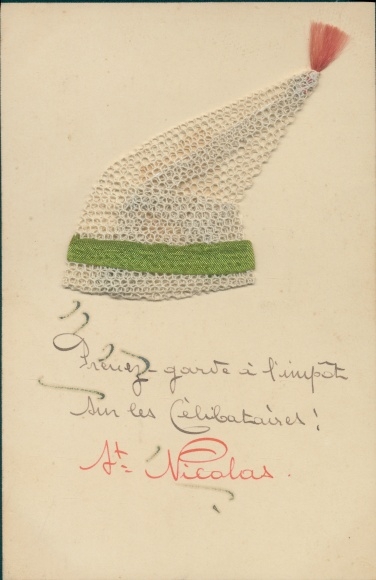 Prenez-garde à l'impôt
sur les Célibataires!
St Nicolas.